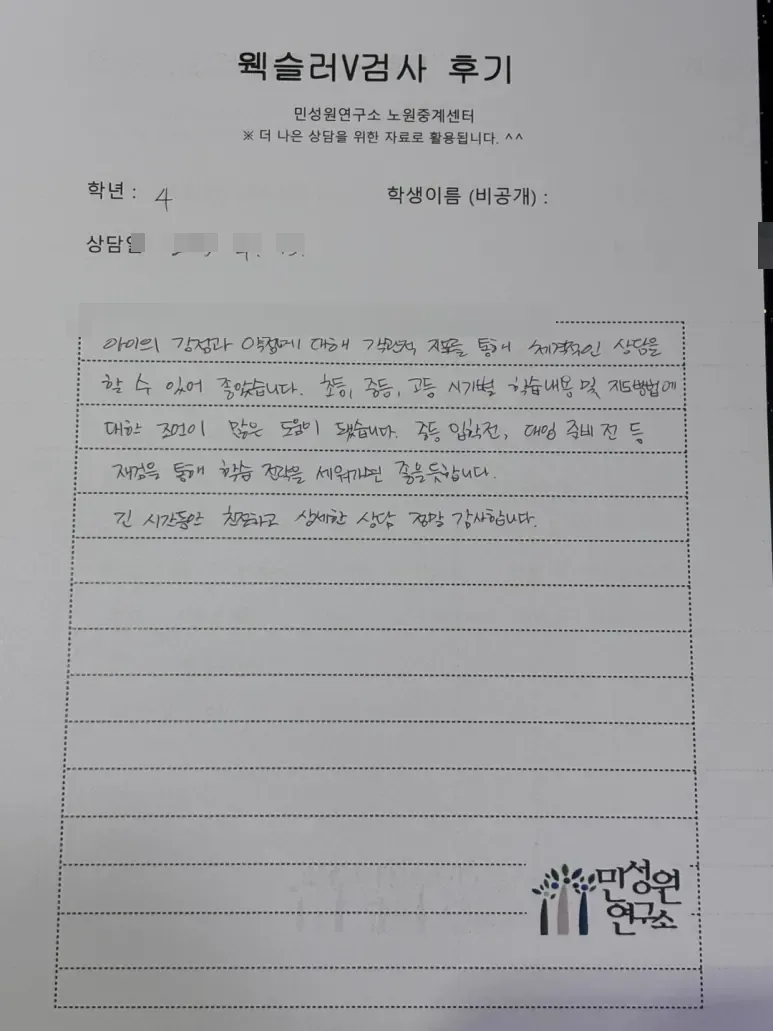 웩슬러V검사 후기
민성원연구소 노원중계센터
※ 더 나은 상담을 위한 자료로 활용됩니다. ^^
학년 : 4 학생이름 (비공개) :
상담일
아이의 강점과 약점에 대해 객관적 지표를 통해 체계적인 상담을
할 수 있어 좋았습니다. 초등, 중등, 고등 시기별 학습내용 및 지도방법에
대한 조언이 많은 도움이 됐습니다. 중등 입학전, 대입 준비 전 등
재검을 통해 학습 전략을 세워가면 좋을듯합니다.
긴 시간동안 친절하고 상세한 상담 정말 감사합니다.
민성원
연구소